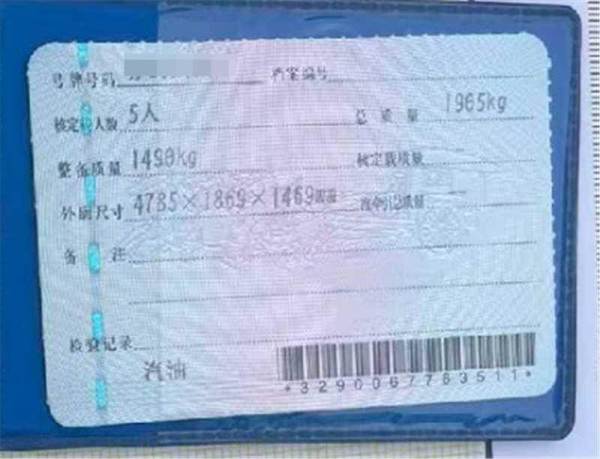 号牌号码 档案编号
核定载人数 5人 总质量 1965kg
整备质量 1490kg 核定载质量 --
外廓尺寸 4785×1869×1469mm 准牵引总质量 --
备注
检验记录
汽油
*3290067763511*